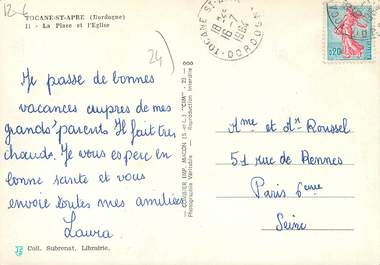 12-6
TOCANE-ST-APRE (Dordogne)
11 - La Place et l'Eglise
24)
Je passe de bonnes
vacances aupres de mes
grands'parents. Il fait très
chauds. Je vous espere en
bonne santé et vous
envoie toutes mes amitiées
Laura
Coll. Subrenat, Librairie.
COMBIER IMP. MACON (S.-&-L.) "CIM"
Photographie Véritable - Reproduction interdite
TOCANE ST-APRE
18 H 45
16-7
1964
DORDOGNE
0,20
Mme et Mr Roussel
51 rue de Rennes
Paris 6eme
Seine